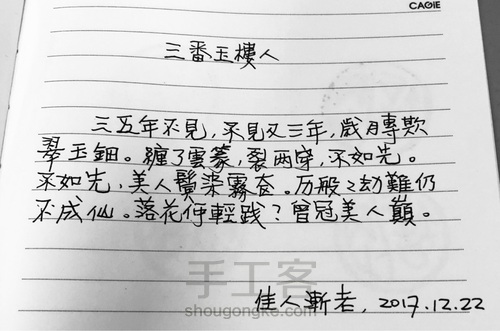 CAGIE
三番玉樓人
三五年不見，不見又三年，歲月專欺
翠玉鈿。纏了雲篆，裂兩穿，不如先。
不如先，美人鬢染霧奩。历般々劫難仍
不成仙。落花何輕践？曾冠美人巔。
佳人漸老，2017.12.22
手工客
shougongke.com